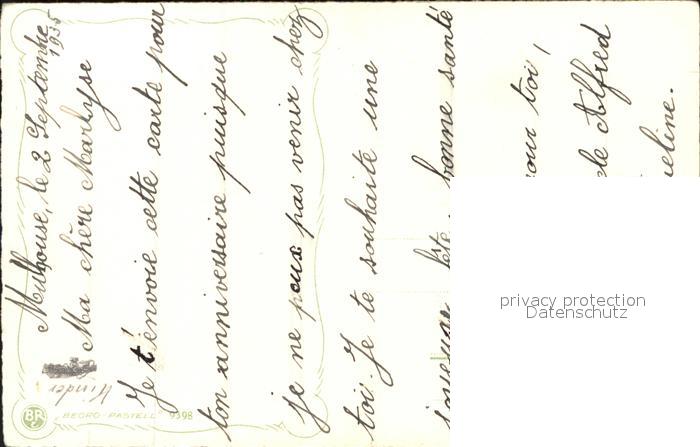 Mulhouse, le 2 Septembre
1935
Ma chère Marlyse
Je t'envoie cette carte pour
ton anniversaire puisque
je ne peux pas venir chez
toi. Je te souhaite une
fête. bonne santé
pour toi!
Alfred
BR
BEGRO-PASTELL 9398
privacy protection
Datenschutz